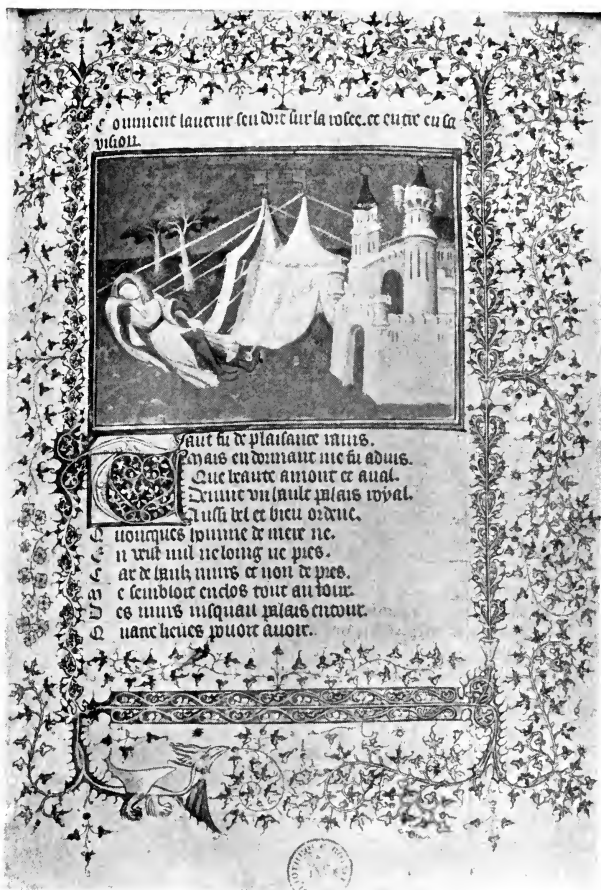 Comment lauteur sen dort sur la rosee. et entre en sa
vision.
Tant fu de plaisance ravis.
Mais en dormant me fu advis.
Que beaute amont et aval.
Devint un hault palais royal.
Aussi bel et bien ordene.
Quoncques homme de mere ne.
En veist nul ne loing ne pres.
Car de haulz murs et non de pres.
Se sembloit enclos tout au tour.
Des murs jusquau palais entour.
Quatre lieues pouoit avoir.